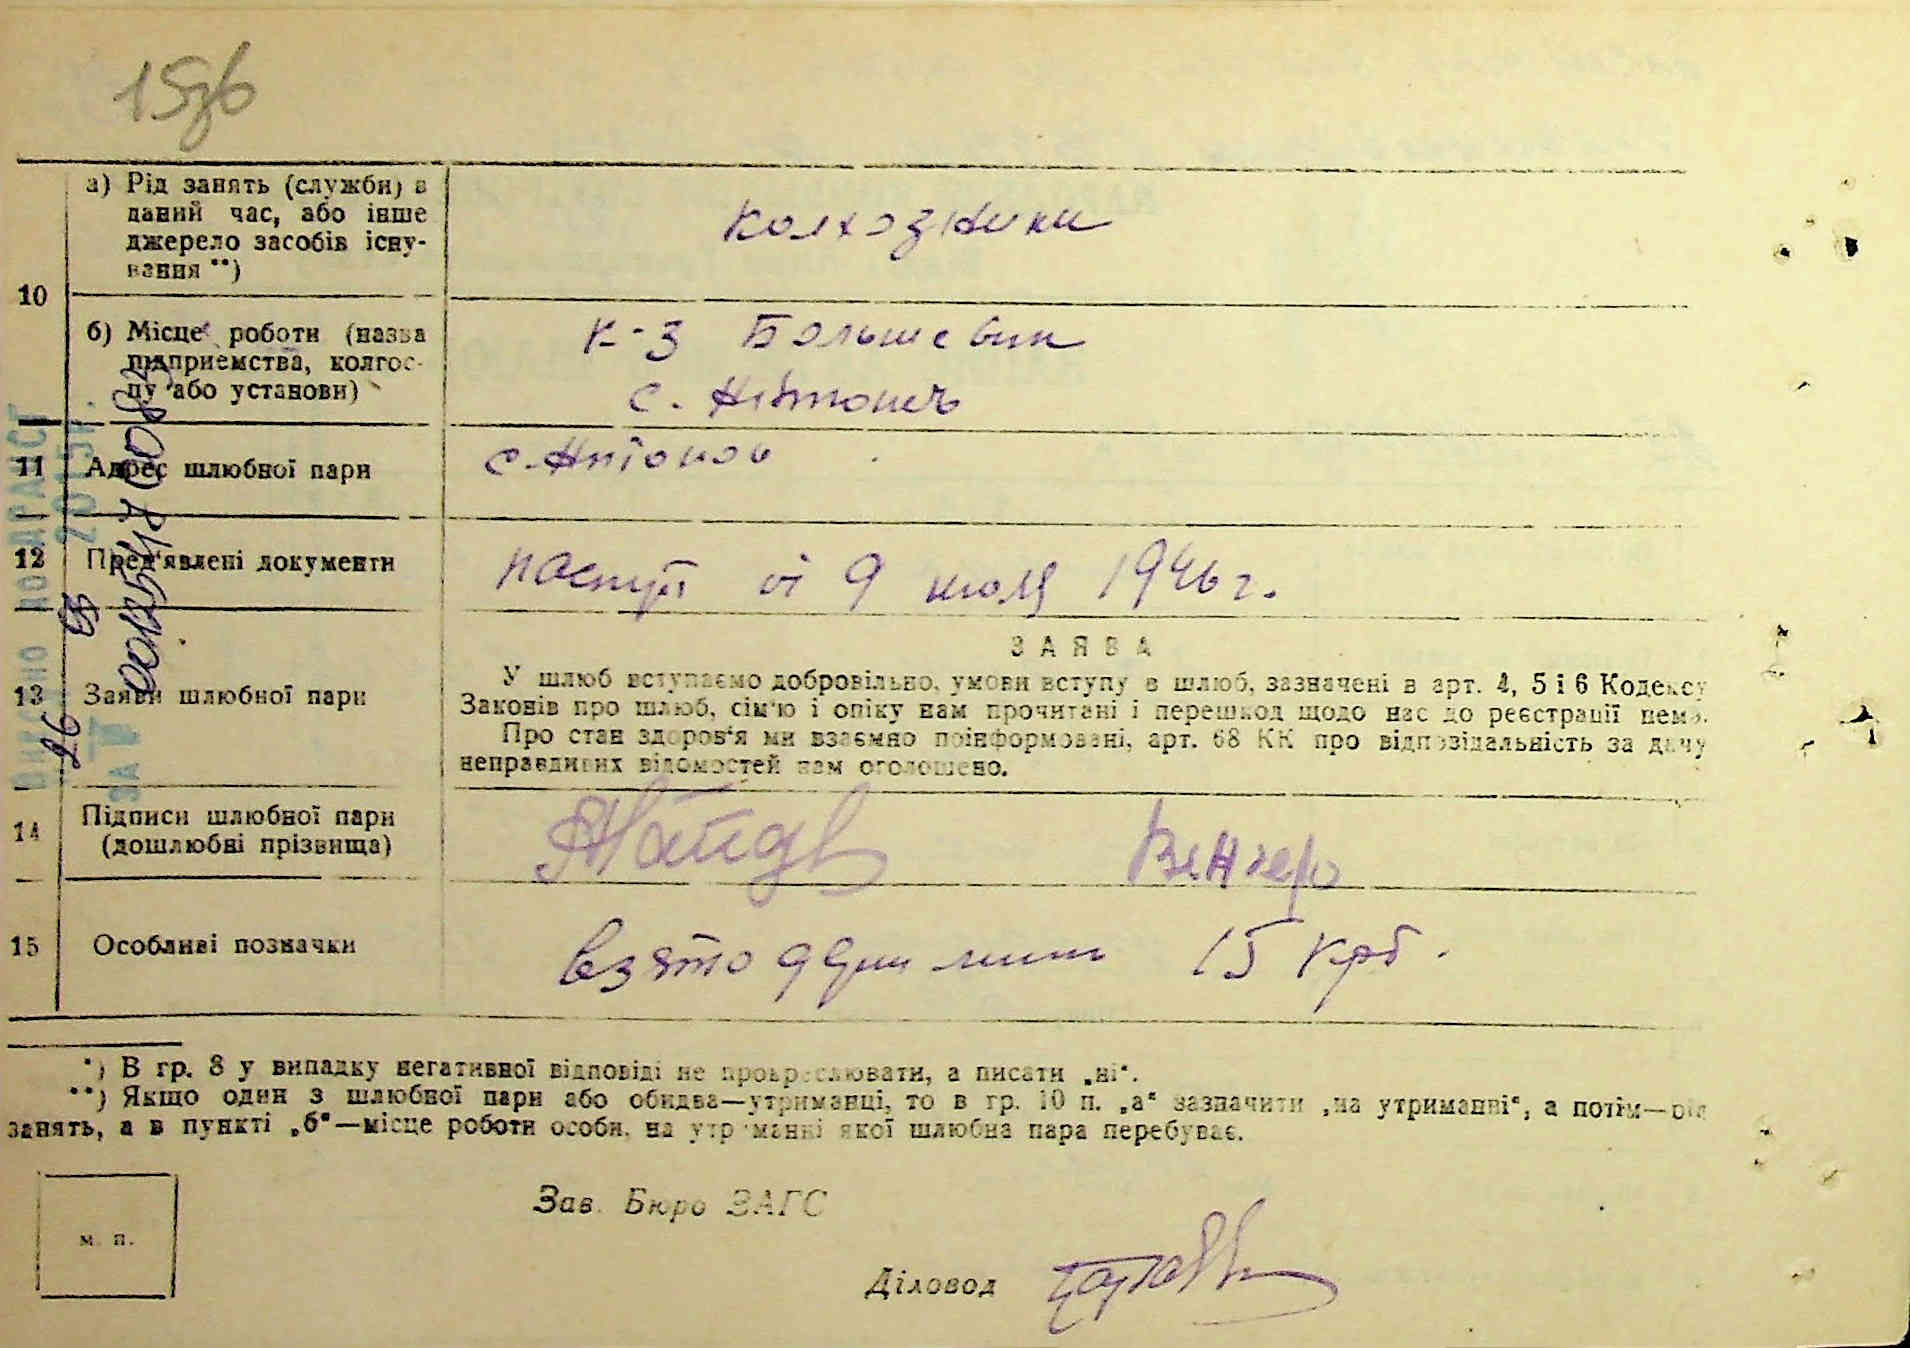 15зв
10
а) Рід занять (служби) в
даний час, або інше
джерело засобів існу-
вання **)
колхозники
б) Місце роботи (назва
підприємства, колгос-
пу або установи)
К-з Большевик
с.
11
Адрес шлюбної пари
с. Антонов
12
Пред'явлені документи
паспорт от 9 июля 1946 г.
13
Заяви шлюбної пари
ЗАЯВА
У шлюб вступаємо добровільно, умови вступу в шлюб, зазначені в арт. 4, 5 і 6 Кодексу
Законів про шлюб, сім'ю і опіку нам прочитані і перешкод щодо нас до реєстрації нема.
Про стан здоров'я ми взаємно поінформовані, арт. 68 КК про відповідальність за дачу
неправдивих відомостей нам оголошено.
14
Підписи шлюбної пари
(дошлюбні прізвища)
15
Особливі позначки
взято 15 крб.
*) В гр. 8 у випадку негативної відповіді не прокреслювати, а писати „ні“.
**) Якщо один з шлюбної пари або обидва—утриманці, то в гр. 10 п. „а“ зазначити „на утриманні“, а потім—рід
занять, а в пункті „б“—місце роботи особи, на утриманні якої шлюбна пара перебуває.
м. п.
Зав. Бюро ЗАГС
Діловод